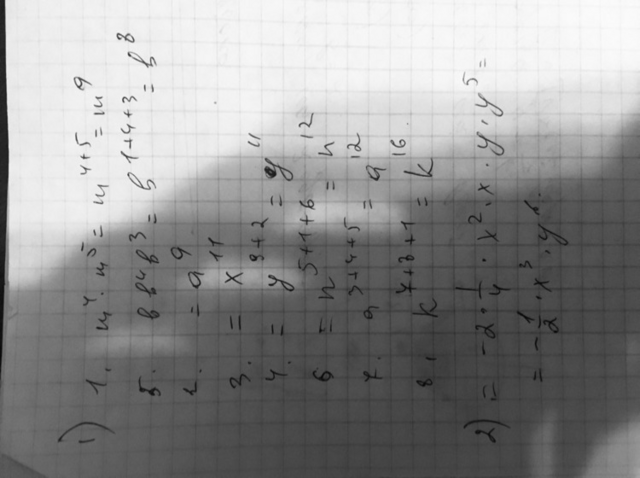 1)
1. m⁴·m⁵ = m⁴⁺⁵ = m⁹
5. b b⁴ b³ = b¹⁺⁴⁺³ = b⁸
2. = a⁹
3. = x¹¹
4. = y⁹⁺² = y¹¹
6 = n⁵⁺¹⁺⁶ = n¹²
7. a³⁺⁴⁺⁵ = a¹²
8. k⁷⁺⁸⁺¹ = k¹⁶
2) = -2·1/4·x²·x·y·y⁵ =
= -1/2·x³·y⁶.